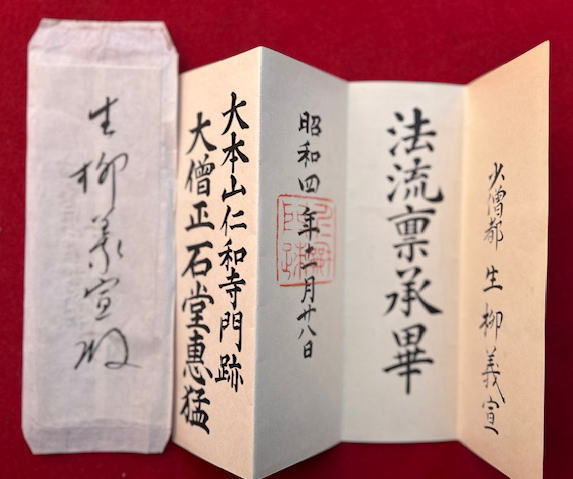 少僧都 生柳義宣
法流稟承畢
昭和四年十一月廿八日
大本山仁和寺門跡
大僧正石堂惠猛
生柳義宣殿